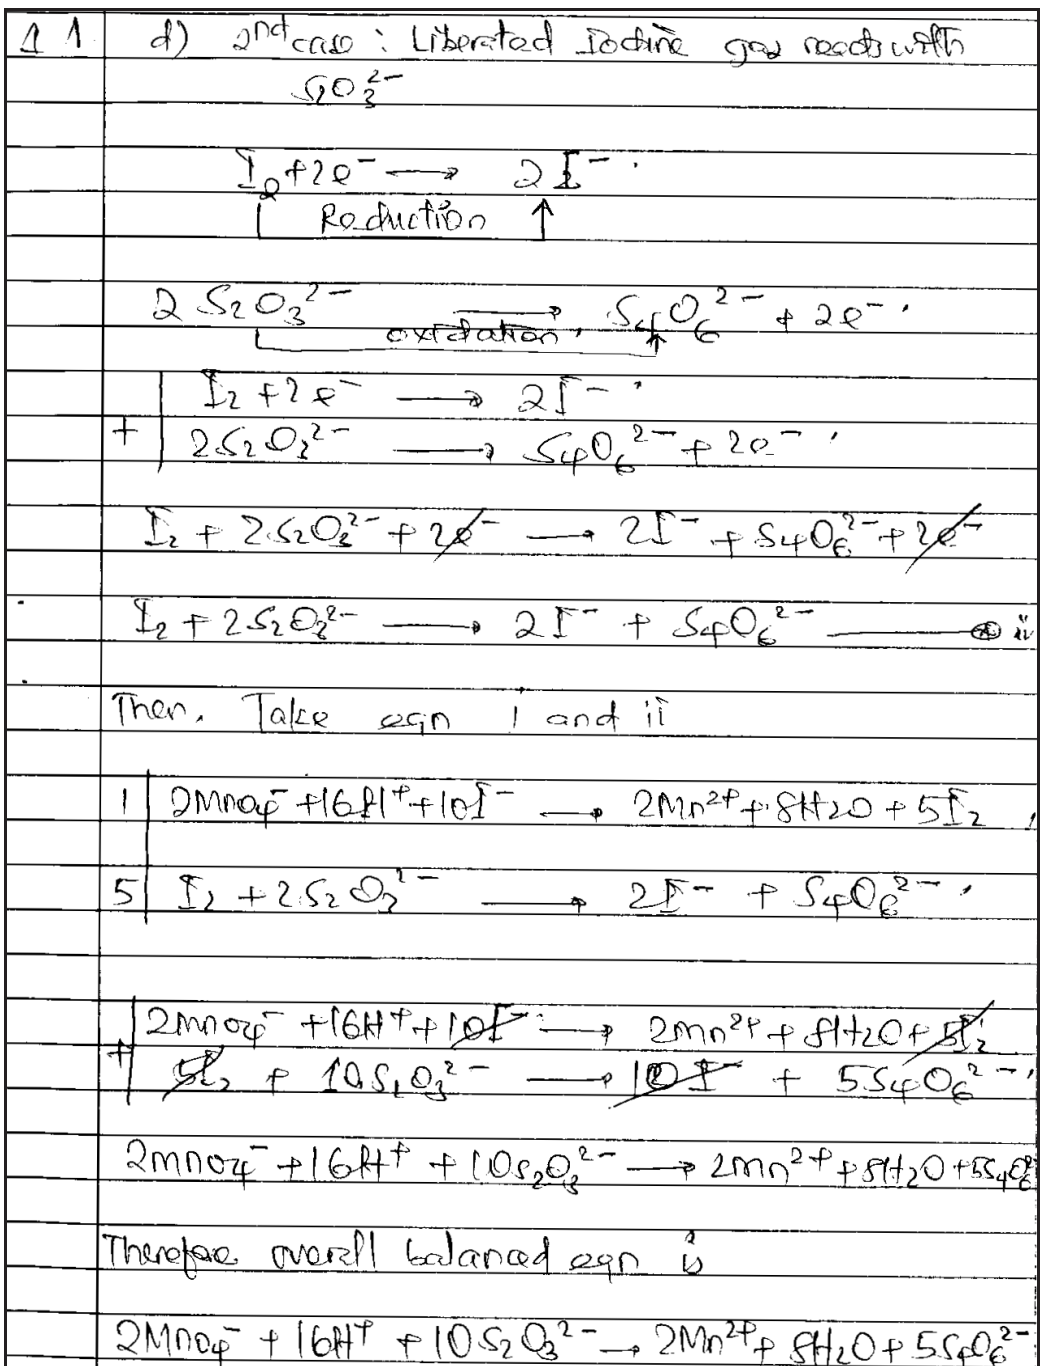 11 d) 2nd case : Liberated Iodine gas reacts with
S₂O₃²⁻
I₂ + 2e⁻ → 2I⁻.
Reduction
2S₂O₃²⁻ → S₄O₆²⁻ + 2e⁻.
oxidation.
I₂ + 2e⁻ → 2I⁻.
+ 2S₂O₃²⁻ → S₄O₆²⁻ + 2e⁻.
I₂ + 2S₂O₃²⁻ + 2e⁻ → 2I⁻ + S₄O₆²⁻ + 2e⁻
I₂ + 2S₂O₃²⁻ → 2I⁻ + S₄O₆²⁻ ii
Then, Take eqn i and ii
1 2MnO₄⁻ + 16H⁺ + 10I⁻ → 2Mn²⁺ + 8H₂O + 5I₂
5 I₂ + 2S₂O₃²⁻ → 2I⁻ + S₄O₆²⁻.
2MnO₄⁻ + 16H⁺ + 10I⁻ → 2Mn²⁺ + 8H₂O + 5I₂
+ 5I₂ + 10S₂O₃²⁻ → 10I⁻ + 5S₄O₆²⁻.
2MnO₄⁻ + 16H⁺ + 10S₂O₃²⁻ → 2Mn²⁺ + 8H₂O + 5S₄O₆²⁻
Therefore overall balanced eqn is
2MnO₄⁻ + 16H⁺ + 10S₂O₃²⁻ → 2Mn²⁺ + 8H₂O + 5S₄O₆²⁻